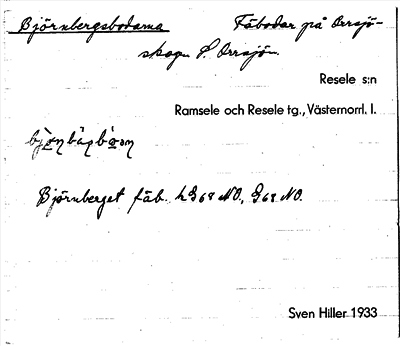 Björnbergsbodarna Fäbodar på Orrsjö-
skogen S. Orrsjön.
Resele s:n
Ramsele och Resele tg., Västernorrl. l.
Björnberget fäb. hG68 NO, G68 NO.
Sven Hiller 1933